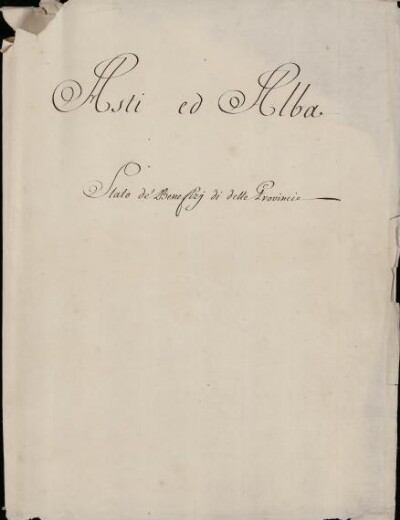 Asti ed Alba
Stato de' Benefizj di dette Provincie